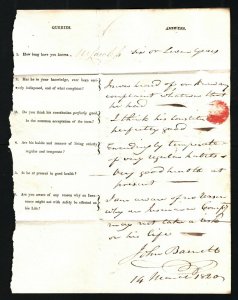 QUERIES.
ANSWERS.
1. How long have you known
Six or Seven Years
2. Has he to your knowledge, ever been seriously indisposed, and of what complaint?
never heard of any
complaint whatever that
he had
3. Do you think his constitution perfectly good, in the common acceptation of the term?
I think his Constitution
perfectly good
4. Are his habits and manner of living strictly regular and temperate?
Exceedingly temperate
of very regular habits
5. Is he at present in good health?
very good health at
present
6. Are you aware of any reason why an Insurance might not with safety be effected on his Life?
I am aware of no Reason
why an Insurance
may not take a
on his life
John Barnett
14 March 1820